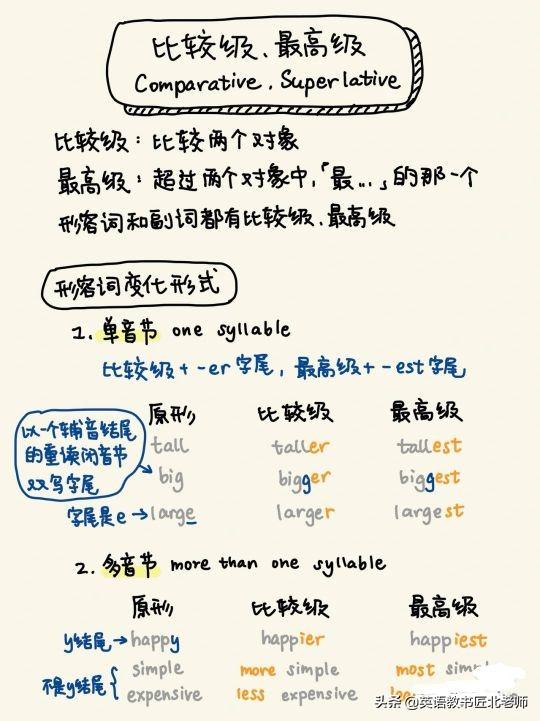 比较级、最高级
Comparative、Superlative
比较级：比较两个对象
最高级：超过两个对象中，「最...」的那一个
形容词和副词都有比较级、最高级
形容词变化形式
1. 单音节 one syllable
比较级+-er字尾，最高级+-est字尾
原形 比较级 最高级
以一个辅音结尾的重读闭音节双写字尾
tall taller tallest
big bigger biggest
字尾是e→large larger largest
2. 多音节 more than one syllable
原形 比较级 最高级
y结尾→happy happier happiest
不是y结尾
simple more simple most
expensive less expensive
头条 @英语教书匠北老师